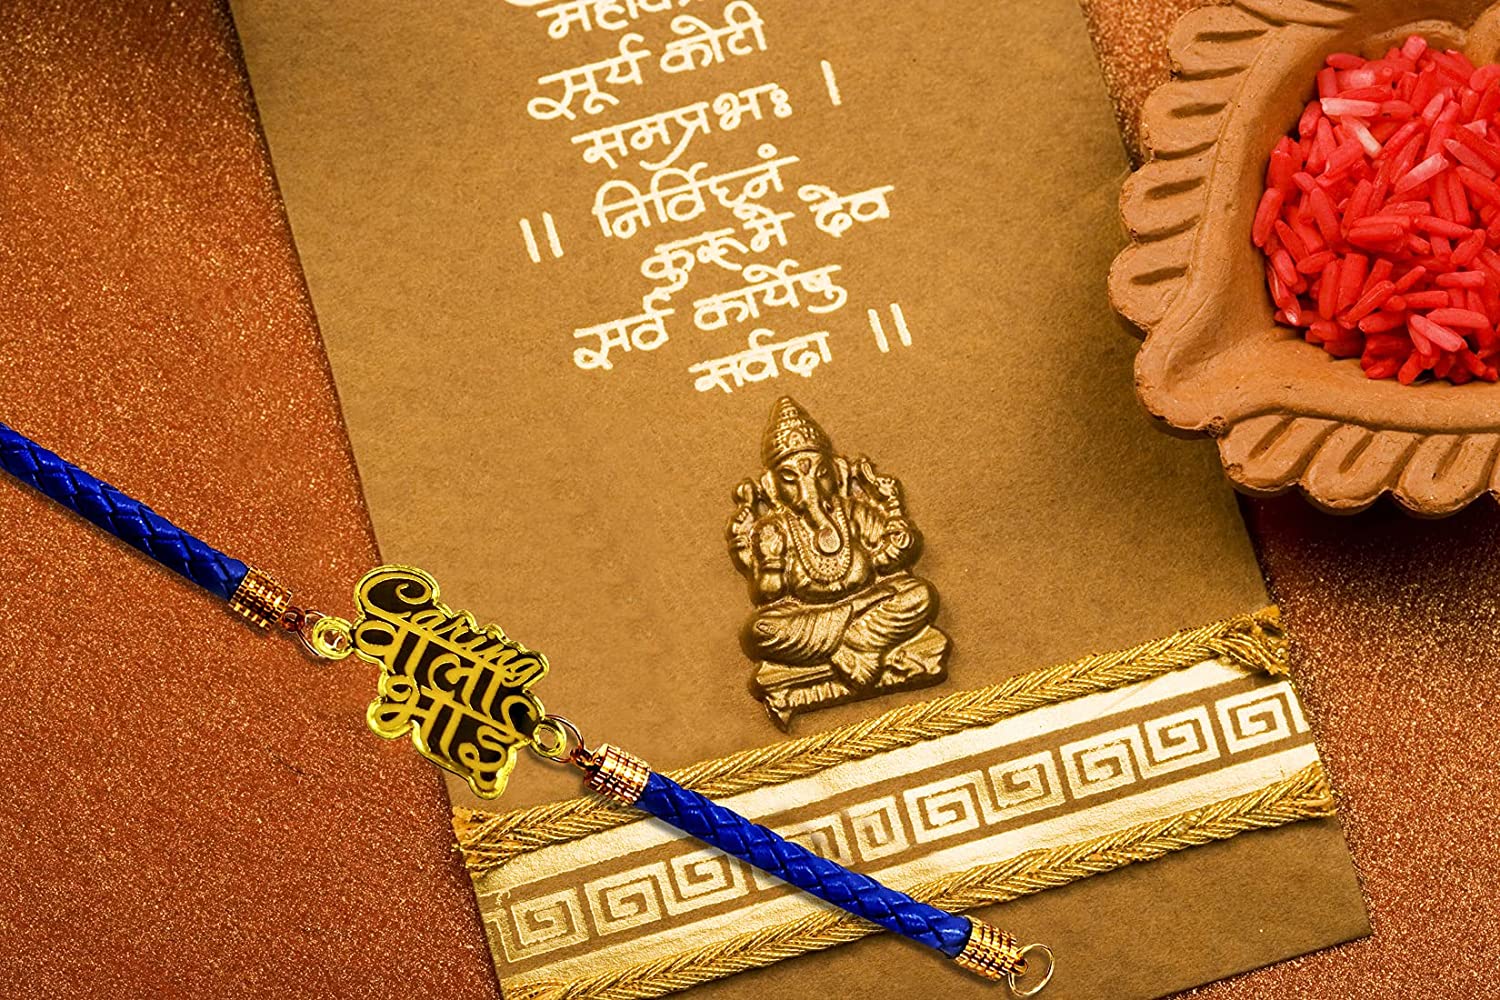 सूर्य कोटी
समप्रभः ।
॥ निर्विघ्नं
कुरूमे देव
सर्व कार्येषु
सर्वदा ॥
Caring
वाला
भाई